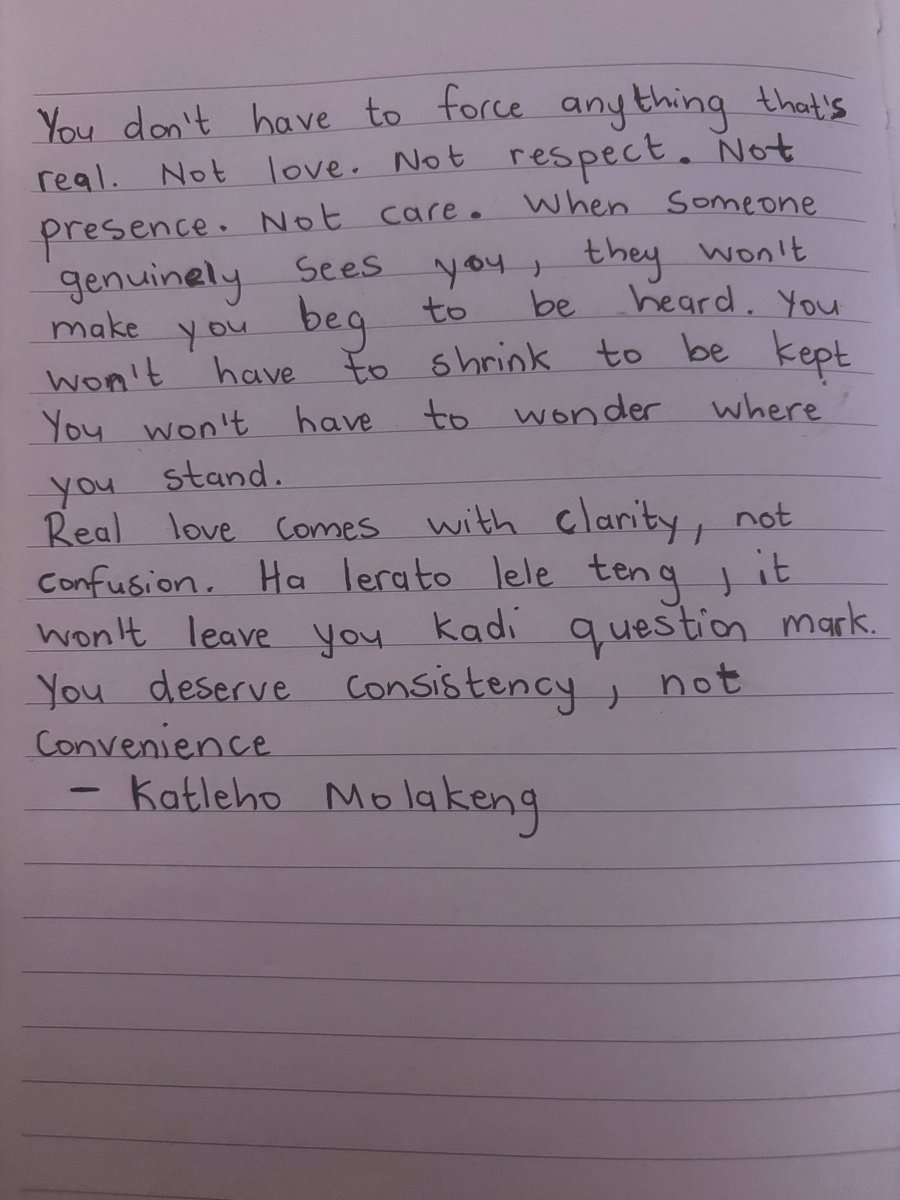 You don't have to force anything that's
real. Not love. Not respect. Not
presence. Not care. When someone
genuinely sees you, they won't
make you beg to be heard. You
won't have to shrink to be kept
You won't have to wonder where
you stand.
Real love comes with clarity, not
confusion. Ha lerato lele teng, it
won't leave you kadi question mark.
You deserve consistency, not
convenience
- Katleho Molakeng